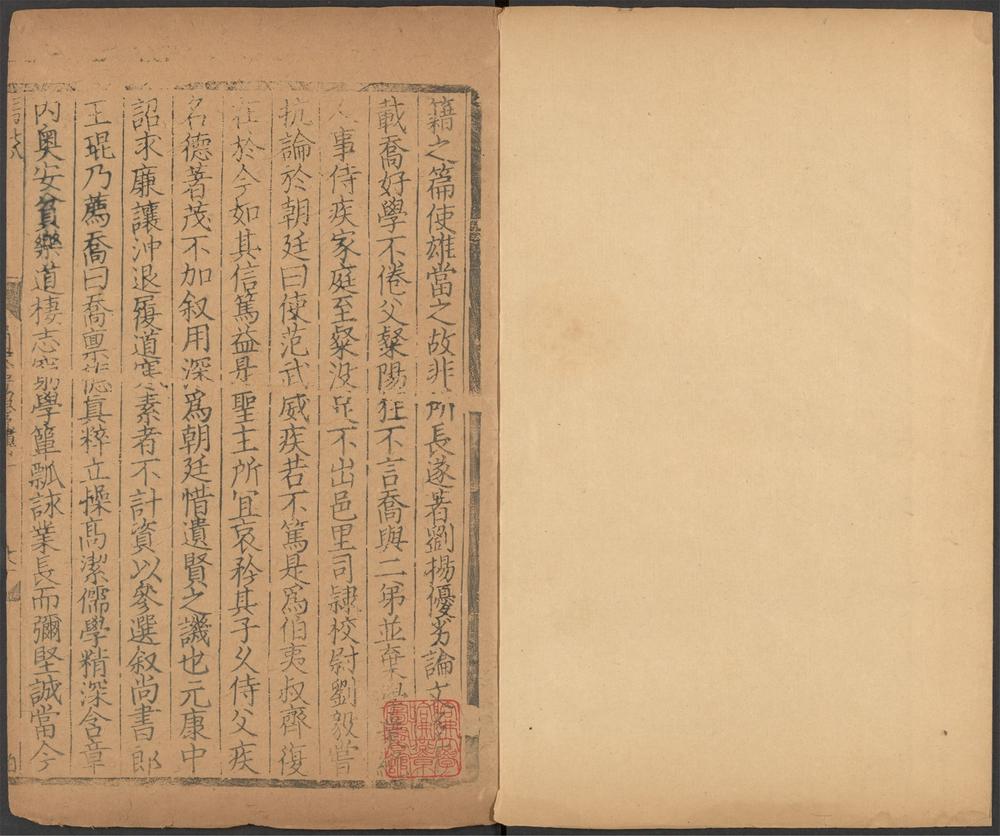 籍之篇使雄當之故非所長遂著劉揚優劣論文
載喬好學不倦父粲陽狂不言喬與二弟並棄學
事侍疾家庭至粲没足不出邑里司隷校尉劉毅嘗
抗論於朝廷曰使范武威疾若不篤是爲伯夷叔齊復
在於今如其信篤益是聖主所宜哀矜其子乆侍父疾
名德著茂不加叙用深爲朝廷惜遺賢之譏也元康中
詔求廉讓沖退履道寒素者不計資以參選叙尚書郎
王琨乃薦喬曰喬稟德真粹立操高潔儒學精深含章
内奥安貧樂道棲志窮學簞瓢詠業長而彌堅誠當今